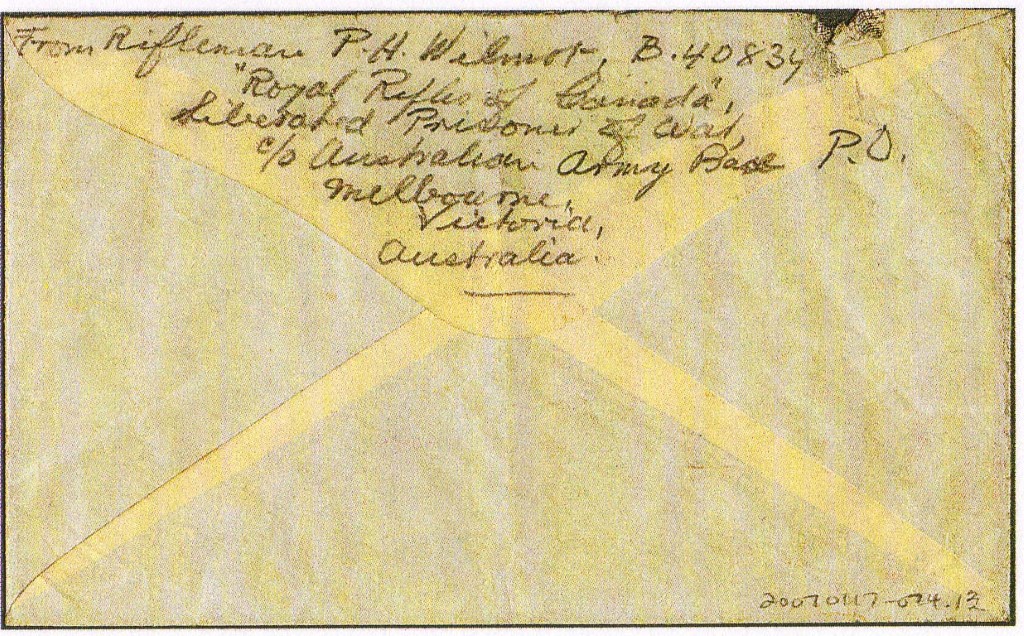 From Rifleman P.H. Wilmot, B.40834
"Royal Rifles of Canada",
Liberated Prisoner of War,
c/o Australian Army Base P.O.
Melbourne,
Victoria,
Australia.
20070117-024.13